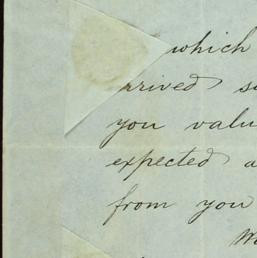 which
rrived
you valu
expected a
from you